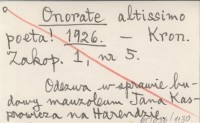 Onorate altissimo
poeta! 1926. – Kron.
Zakop. 1, nr 5.
Odezwa w sprawie bu-
dowy mauzoleum Jana Kas-
prowicza na Harendzie.